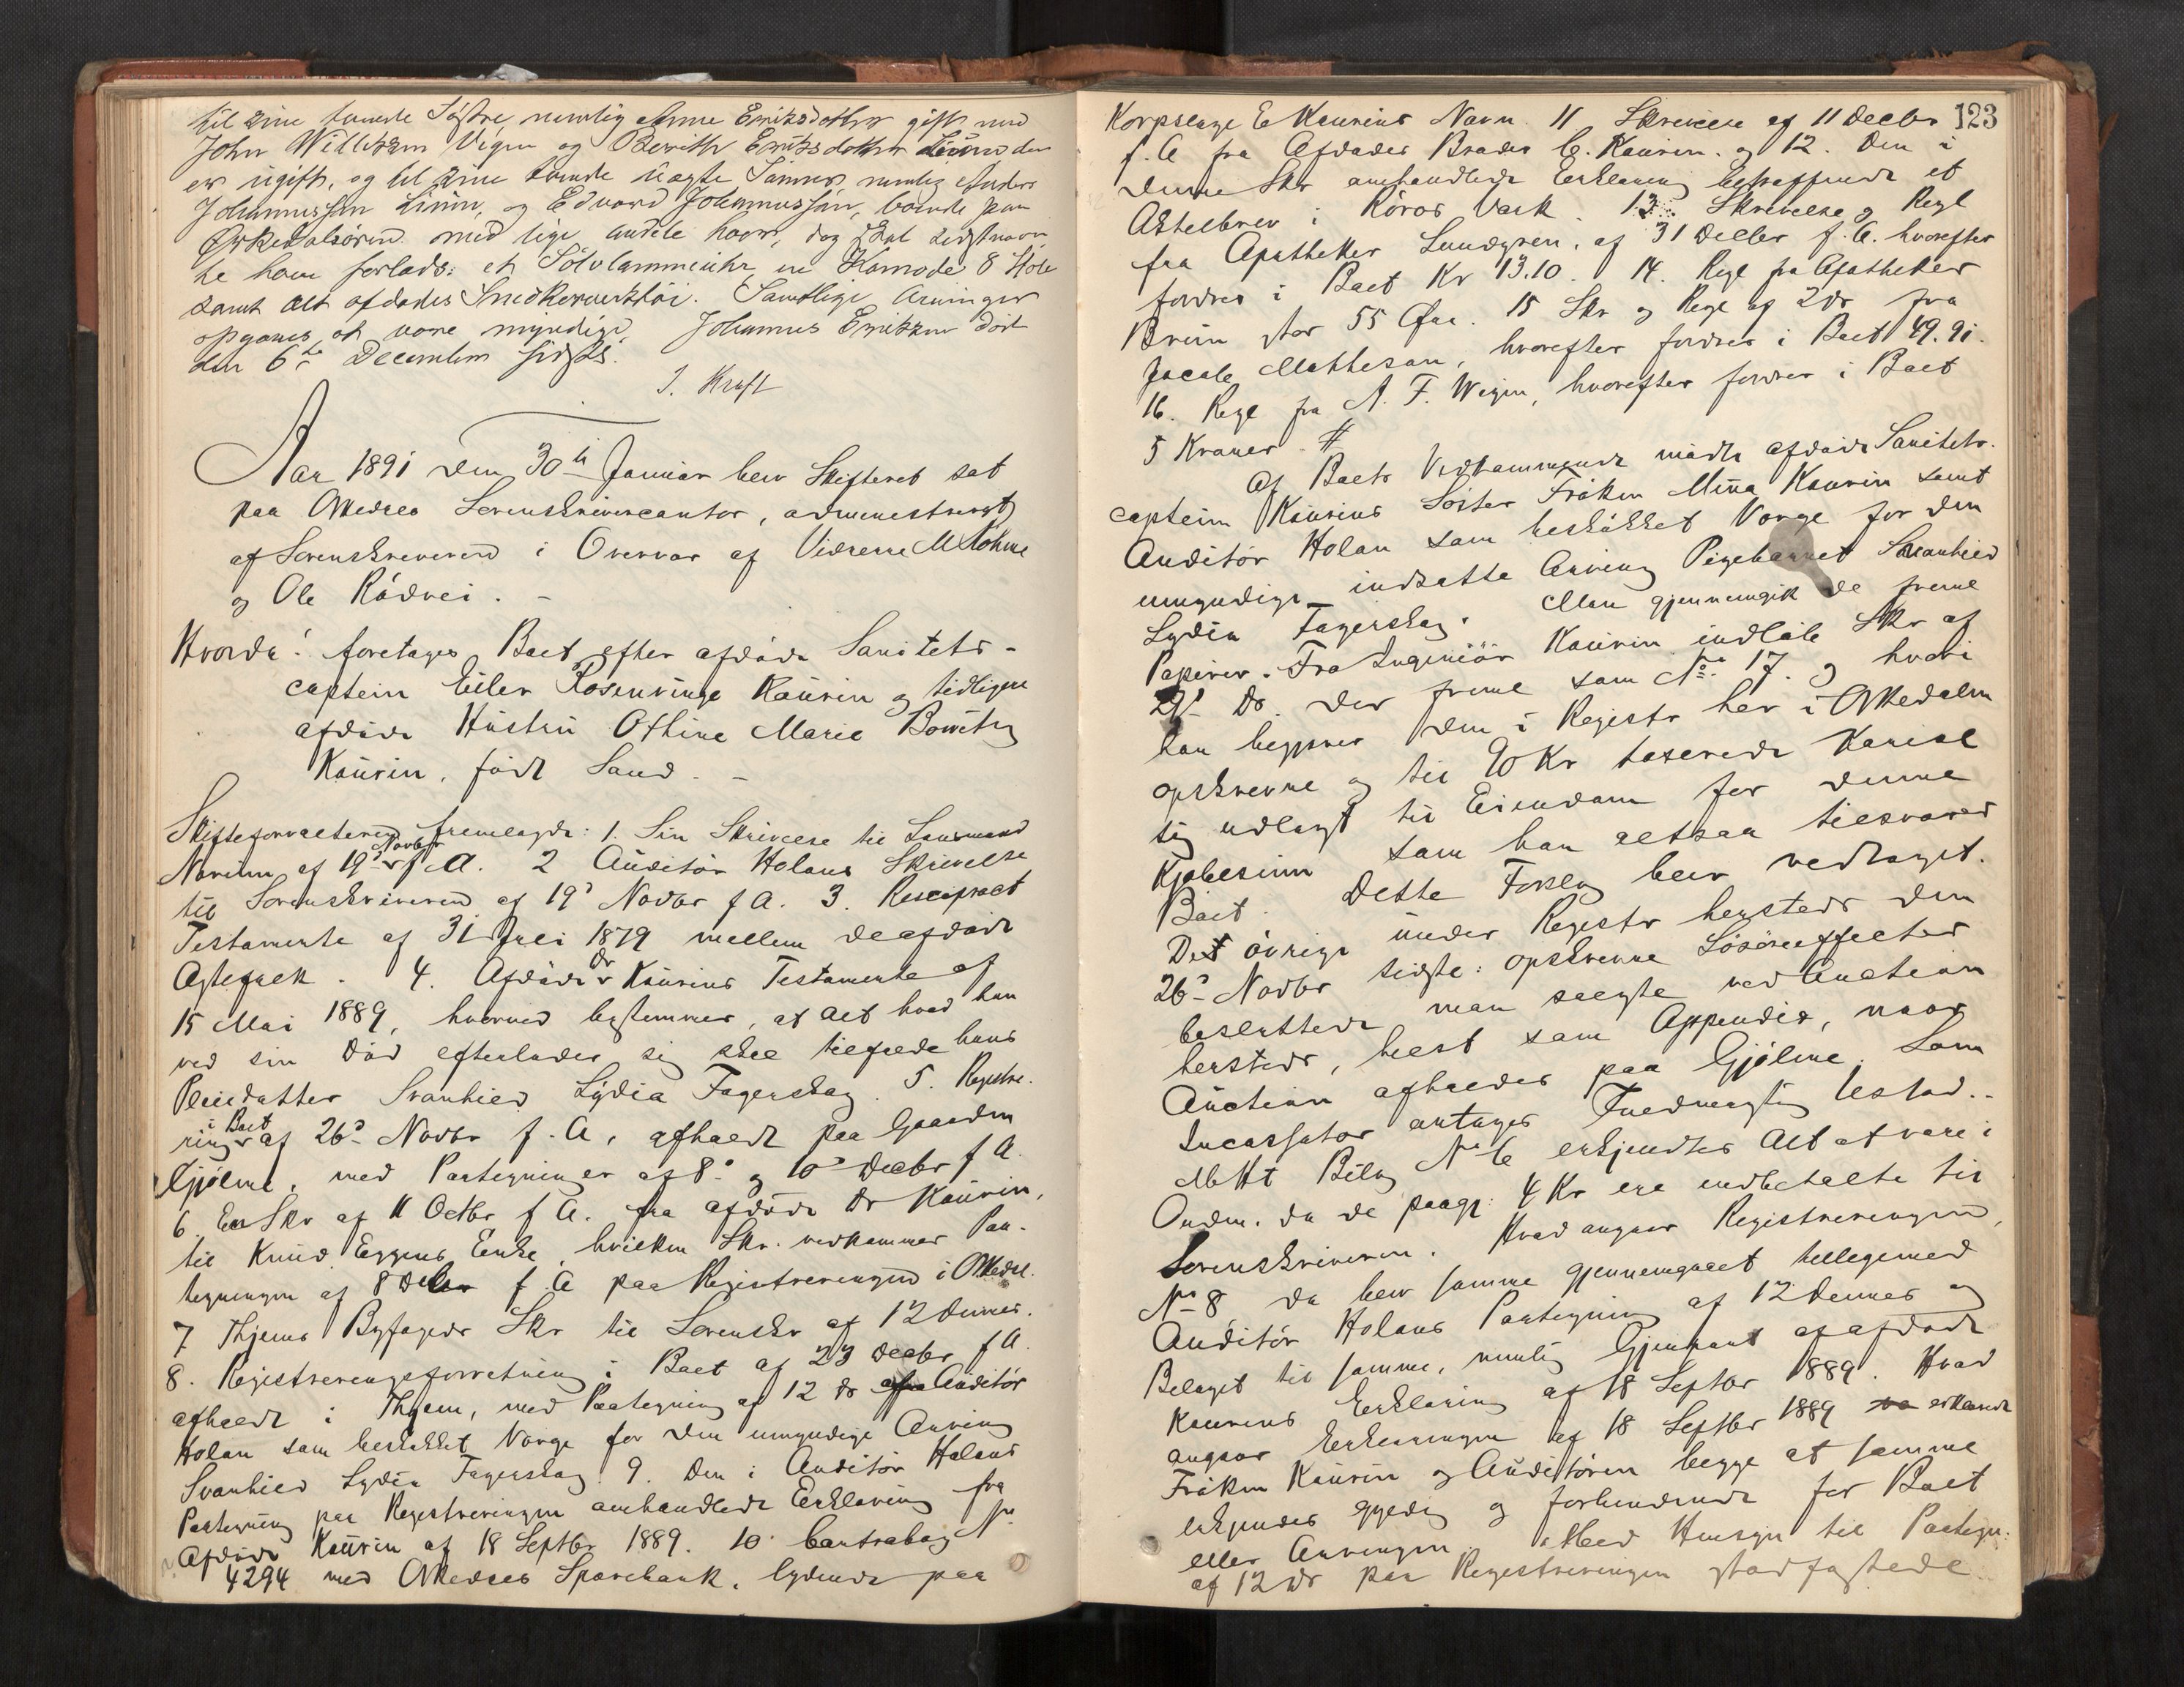 til sine tvende Søstre nemlig Anne Eriksdatter gift med
John Willersen Vigen og Berith Eriksdatter Liien der
er ugift, og til sine tvende uægte Sønner, nemlig Anders
Johannessen Liien, og Edvard Johannessen, boende paa
Ørkedalsøren med lige Andele hver, dog skal sidstnævn
te have forlods: et Sölvlommeuhr, en Komode 8 Stole
samt alt afdødes Snedkerverktøi. Samtlige Arvinger
opgaves at være myndige. Johannes Eriksen døde
den 6te December sidstl.
J. Kraft
Aar 1891 den 30te Januar blev Skifteret sat
paa Orkedals Sorenskrivercontor, administreret
af Sorenskriveren i Overvær af Vidnerne M Rohne
og Ole Rødvei. -
Hvorda: foretages Boet efter afdøde Sanitets-
captein Eiler Rosenvinge Kaurin og tidligere
afdøde Hustru Othine Marie Bowitz
Kaurin, født Sand. -
Skifteforvalteren fremlagde: 1. Sin Skrivelse til Lensmand
Narum af 19de Novbr f A. 2 Auditør Holans Skrivelse
til Sorenskriveren af 19' Novbr f A. 3. Reciproct
Testamente af 31 Juli 1879 mellem de afdøde
Ægtefolk. 4. Afdøde Dr Kaurins Testamente af
15 Mai 1889, hvorved bestemmes, at Alt hvad han
ved sin Død efterlader sig skal tilfalde hans
Pleiedatter Svanhild Lydia Fagerslag. 5. Registre-
ring i Boet af 26' Novbr f. A, afholdt paa Gaarden
Gjølme, med Paategninger af 8' og 10' Decbr f A.
6. En Skr af 11 Octbr f A. fra afdøde Dr Kaurin,
til Knud Eggens Enke, hvilken Skr. vedkommer Paa-
tegningen af 8 Decbr f. A paa Registreringen i Orkedal.
7 Thjems Byfogeds Skr til Sorenskr af 12 dennes.
8. Registreringsforretning i Boet af 23 Decbr f A.
afholdt i Thjem, med Paategning af 12 ds fra Auditør
Holan som beskikket Værge for den umyndige Arving
Svanhild Lydia Fagerslag. 9. Den i Auditør Holans
Paategning paa Registreringen omhandlede Erklæring fra
Afdøde Kaurin af 18 Septbr 1889. 10. Contrabog No
4294 med Orkedals Sparebank, lydende paa
123
Korpslæge E Kaurins Navn. 11 Skrivelse af 11 Decbr
f. A fra Afdødes Broder C. Kaurin. og 12. Den i
denne Skr omhandlede Erklæring betræffende et
Actiebrev i Røros Værk. 13. Skrivelse og Regl
fra Apotheker Lundgren, af 31 Decbr f. A. hvorefter
fordres i Boet Kr 13.10. 14. Regl fra Apotheker
Bruun stor 55 Øre. 15 Skr og Regl af 2 ds fra
Jacob Matheson, hvorefter fordres i Boet 49.91.
16. Regl fra A. F. Wigen, hvorefter fordres i Boet
5 Kroner. #
Af Boets Vedkommende mødte afdøde Sanitets-
captein Kaurins Søster Frøken Mina Kaurin samt
Auditør Holan som beskikket Værge for den
umyndige indsatte Arving Pigebarnet Svanhild
Lydia Fagerslag. Man gjennemgik de freml
Papirer. Fra Ingeniör Kaurin indløb Skr af
29' ds. der freml som No. 17. og hvori
han begjærer den i Registr her i Orkedalen
opskrevne og til 90 Kr taxerede Kariol
sig udlagt til Eiendom for denne
Kjøbesum som han altsaa tilsvarer
Boet. Dette Forslag blev vedtaget.
Det øvrige under Registr hersteds den
26' Novbr sidste: opskrevne Løsøreeffecter
besluttede man solgte ved Auction
hersteds, helst som Appendix, naar
Auction afholdes paa Gjølme. Som
Incassator antages Fuldmægtig Ustad.
Mht Bilag No 6 erkjendtes Alt at være i
Orden. da de paag: 4 Kr ere indbetalte til
Sorenskriveren. Hvad angaar Registreringen,
No 8 da blev samme gjennemgaaet tilligemed
Auditør Holans Paategning af 12 dennes og
Bilaget til samme, nemlig Gjenpart af afdøde
Kaurins Erklæring af 18 Septbr 1889. Hvad
angaar Erklæringen af 18 Septbr 1889 erklærede
Frøken Kaurin og Auditøren begge at samme
erkjendes gyldig og forbindende for Boet
eller Arvingen. Med Hensyn til Paategn:
af 12 ds paa Registreringen stadfæstede